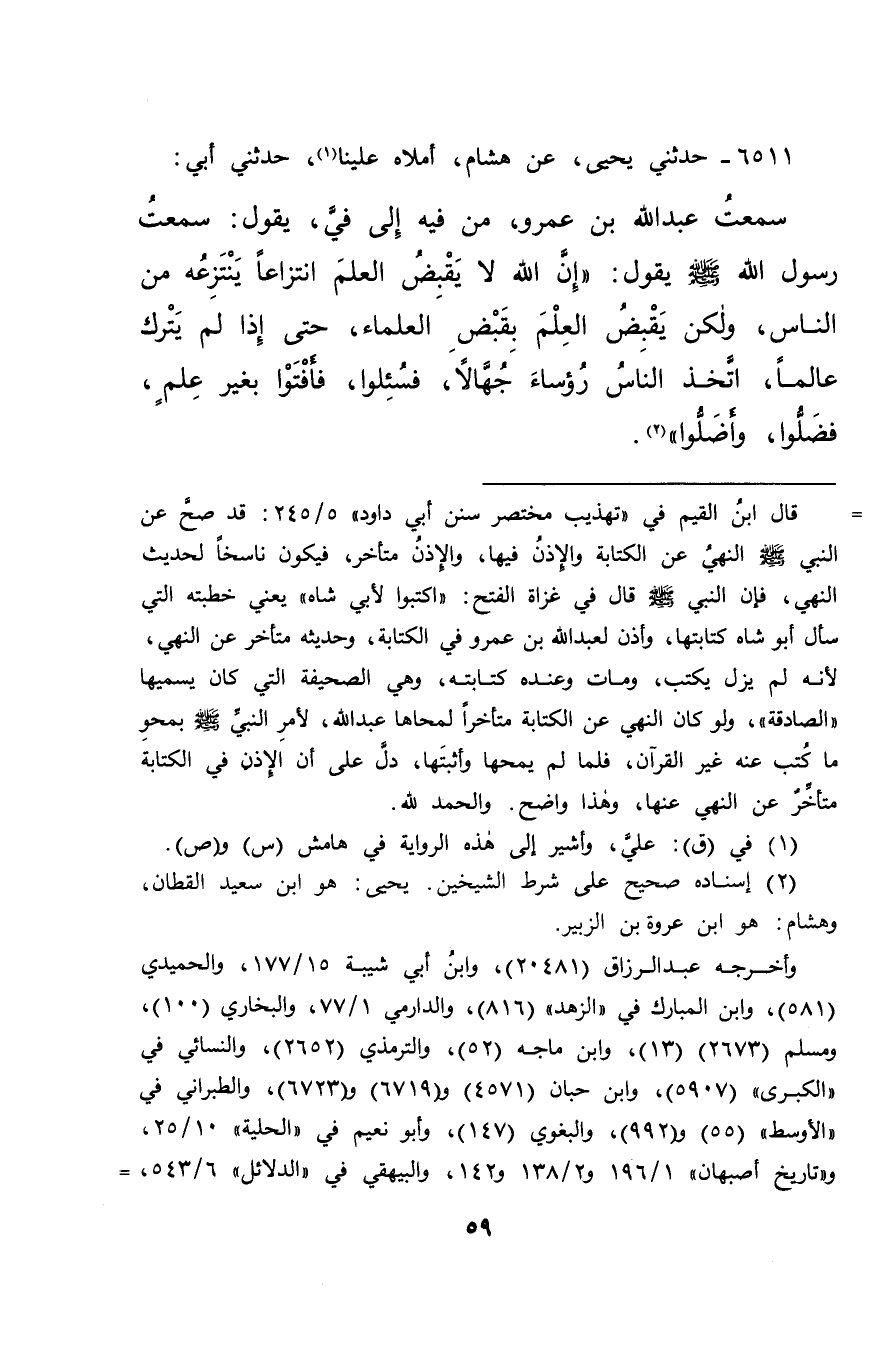 ٦٥١١ـ حدثني يحيى، عن هشام، أملاه علينا(١)، حدثني أبي:
سمعتُ عبدالله بن عمرو، من فيه إلى فيَّ، يقول: سمعتُ
رسول الله ﷺ يقول: «إِنَّ الله لا يَقْبِضُ العلمَ انتزاعاً يَنْتَزِعُه من
النـاس، ولٰكن يَقْبِضُ العِلْمَ بِقَبْضِ العلماء، حتى إِذا لم يَتْرك
عالمـاً، اتَّخـذ الناسُ رُؤساءَ جُهَّالًا، فسُئِلوا، فأَفْتَوْا بغير عِلمٍ،
فضَلُّوا، وأَضَلُّوا»(٢).
= قال ابنُ القيم في «تهذيب مختصر سنن أبي داود» ٢٤٥/٥: قد صحَّ عن
النبي ﷺ النهيُ عن الكتابة والإِذنُ فيها، والإِذنُ متأخر، فيكون ناسخاً لحديث
النهي، فإن النبي ﷺ قال في غزاة الفتح: «اكتبوا لأبي شاه» يعني خطبته التي
سأل أبو شاه كتابتها، وأذن لعبدالله بن عمرو في الكتابة، وحديثه متأخر عن النهي،
لأنـه لم يزل يكتب، ومـات وعنـده كتـابتـه، وهي الصحيفة التي كان يسميها
«الصادقة»، ولو كان النهي عن الكتابة متأخراً لمحاها عبدالله، لأمرِ النبيِّ ﷺ بمحوِ
ما كُتب عنه غير القرآن، فلما لم يمحها وأثبتَها، دلَّ على أن الإِذن في الكتابة
متأخِّرٌ عن النهي عنها، وهٰذا واضح. والحمد لله.
(١) في (ق): عليَّ، وأشير إلى هٰذه الرواية في هامش (س) و(ص).
(٢) إسنـاده صحيح على شرط الشيخين. يحيى: هو ابن سعيد القطان،
وهشام: هو ابن عروة بن الزبير.
وأخـرجـه عبـدالـرزاق (٢٠٤٨١)، وابنُ أبي شيبـة ١٧٧/١٥، والحميدي
(٥٨١)، وابن المبارك في «الزهد» (٨١٦)، والدارمي ٧٧/١، والبخاري (١٠٠)،
ومسلم (٢٦٧٣) (١٣)، وابن ماجـه (٥٢)، والترمذي (٢٦٥٢)، والنسائي في
«الكبـرى» (٥٩٠٧)، وابن حبان (٤٥٧١) و(٦٧١٩) و(٦٧٢٣)، والطبراني في
«الأوسط» (٥٥) و(٩٩٢)، والبغوي (١٤٧)، وأبو نعيم في «الحلية» ٢٥/١٠،
و«تاريخ أصبهان» ١٩٦/١ و١٣٨/٢ و١٤٢، والبيهقي في «الدلائل» ٥٤٣/٦، =
٥٩